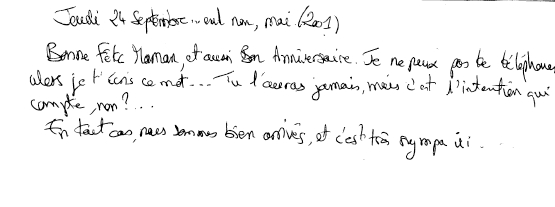 Jeudi 24 Septembre... euh non, mai (2001)
Bonne Fête Maman, et aussi Bon Anniversaire. Je ne peux pas te téléphoner,
alors je t'écris ce mot... Tu l'auras jamais, mais c'est l'intention qui
compte, non ?...
En tout cas, nous sommes bien arrivés, et c'est très sympa ici...